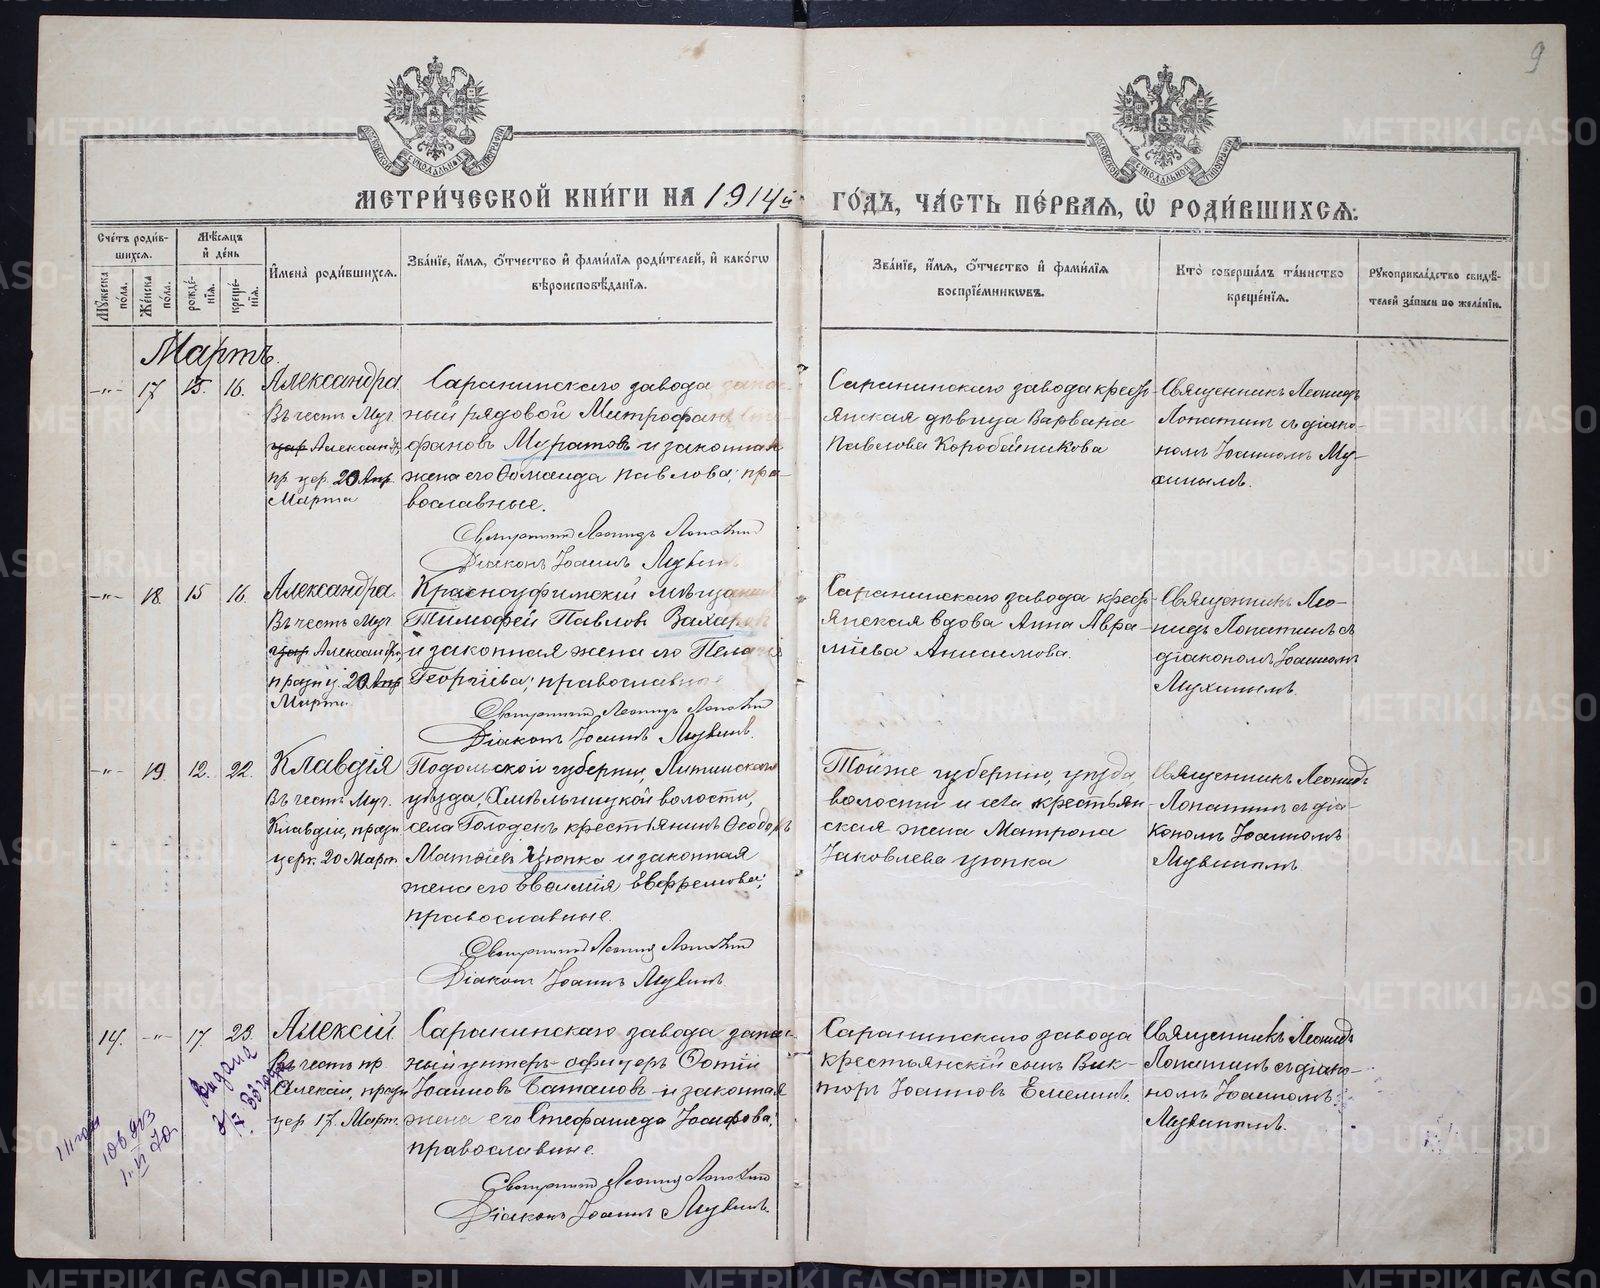 9
МЕТРИ́ЧЕСКОЙ КНИ́ГИ НА 1914й ГО́ДЪ, ЧА́СТЬ ПЕ́РВАЯ, Ѡ҆ РОДИ́ВШИХСЯ:
Сче́тъ роди́в-
шихся.
Му́жеска
по́ла.
Же́нска
по́ла.
Мѣ́сяцъ
и҆ де́нь
рожде́-
нїя.
креще́-
нїя.
И҆мена̀ роди́вшихся.
Зва́нїе, и҆́мя, о҆́тчество и҆ фами́лїя роди́телей, и҆ како́гѡ
вѣроисповѣ́данїя.
Зва́нїе, и҆́мя, о҆́тчество и҆ фами́лїя
воспрїе́мникѡвъ.
Кто̀ соверша́лъ та́инство
креще́нїя.
Рꙋкоприкла́дство свидѣ́-
телей за́писи по жела́нїю.
Мартъ.
-"- 17 15. 16.
Александра
Въ честь Муч.
цар Александр.
пр. цер. 20 Апр.
Марта
Саранинскаго завода запас-
ный рядовой Митрофанъ
фановъ Муратовъ и законная
жена его Домнида Павлова; пра-
вославные.
Священникъ Леонидъ Лопатинъ
Діаконъ Іоаннъ Мухинъ
Саранинскаго завода кресть-
янская дѣвица Варвара
Павлова Коробейникова
Священникъ Леонидъ
Лопатинъ съ діако-
номъ Іоанномъ Му-
хинымъ.
-"- 18. 15 16.
Александра.
Въ честь Муч
цар Александр.,
празн. ц. 20 Апр
Марта.
Красноуфимскій мѣщанинъ
Тимофей Павловъ Захаровъ
и законная жена его Пелагія
Георгіева; православные
Священникъ Леонидъ Лопатинъ
Діаконъ Іоаннъ Мухинъ.
Саранинскаго завода кресть-
янская вдова Анна Авра-
міева Анисимова.
Священникъ Лео-
нидъ Лопатинъ съ
діакономъ Іоанномъ
Мухинымъ.
-"- 19. 12. 22.
Клавдія
Въ честь Муч.
Клавдіи, празн
церк. 20 Март.
Подольской губерніи, Литинскаго
уѣзда, Хмѣльницкой волости,
села Голодекъ крестьянинъ Ѳеодоръ
Матвѣевъ Цюпка и законная
жена его Евѳимія Евфремова;
православные.
Священникъ Леонидъ Лопатинъ
Діаконъ Іоаннъ Мухинъ.
Той же губерніи, уѣзда,
волости и села крестьян-
ская жена Матрона
Іаковлева Цюпка
Священникъ Леонидъ
Лопатинъ съ діа-
кономъ Іоанномъ
Мухинымъ.
14. -"- 17. 23.
Алексій.
Въ честь пр.
Алексія, празн
цер 17. Март.
Саранинскаго завода запас-
ный унтеръ-офицеръ Фотій
Іоанновъ Баташовъ и законная
жена его Стефанида Іосифова;
православные.
Священникъ Леонидъ Лопатинъ
Діаконъ Іоаннъ Мухинъ.
Саранинскаго завода
крестьянскій сынъ Вик-
торъ Іоанновъ Емелинъ.
Священникъ Леонидъ
Лопатинъ съ діако-
номъ Іоанномъ
Мухинымъ.
METRIKI.GASO-URAL.RU